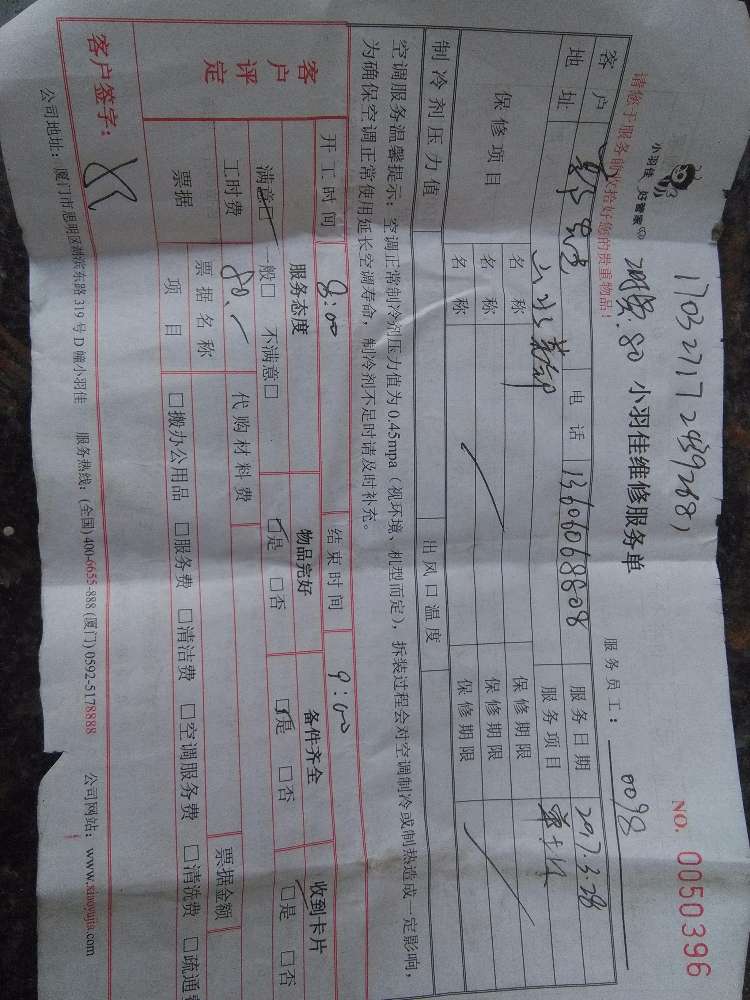 1703271724392681
NO. 0050396
小羽佳 好管家
调费:80 小羽佳维修服务单
服务员工: 0098
请您于服务前收拾好您的贵重物品!
客户 电话 13606068608 服务日期 2017.3.28
地址 服务项目
保修项目 名称 保修期限
名称 保修期限
名称 保修期限
制冷剂压力值 出风口温度
空调服务温馨提示:空调正常制冷剂压力值为0.45mpa(视环境、机型而定),拆装过程会对空调制冷或制热造成一定影响,
为确保空调正常使用延长空调寿命,制冷剂不足时请及时补充。
开工时间 8:00 结束时间 9:00
客户评定 服务态度 物品完好 备件齐全 收到卡片
满意□ 一般□ 不满意□ □是 □否 □是 □否 □是 □否
工时费 80.- 代购材料费
票据 票据名称 票据金额
项目 □搬办公用品 □服务费 □清洁费 □空调服务费 □清洗费 □疏通
客户签字:
公司地址:厦门市思明区湖滨东路319号D幢小羽佳 服务热线:(全国)400-6655-888 (厦门)0592-5178888 公司网站:www.xiaoyujia.com